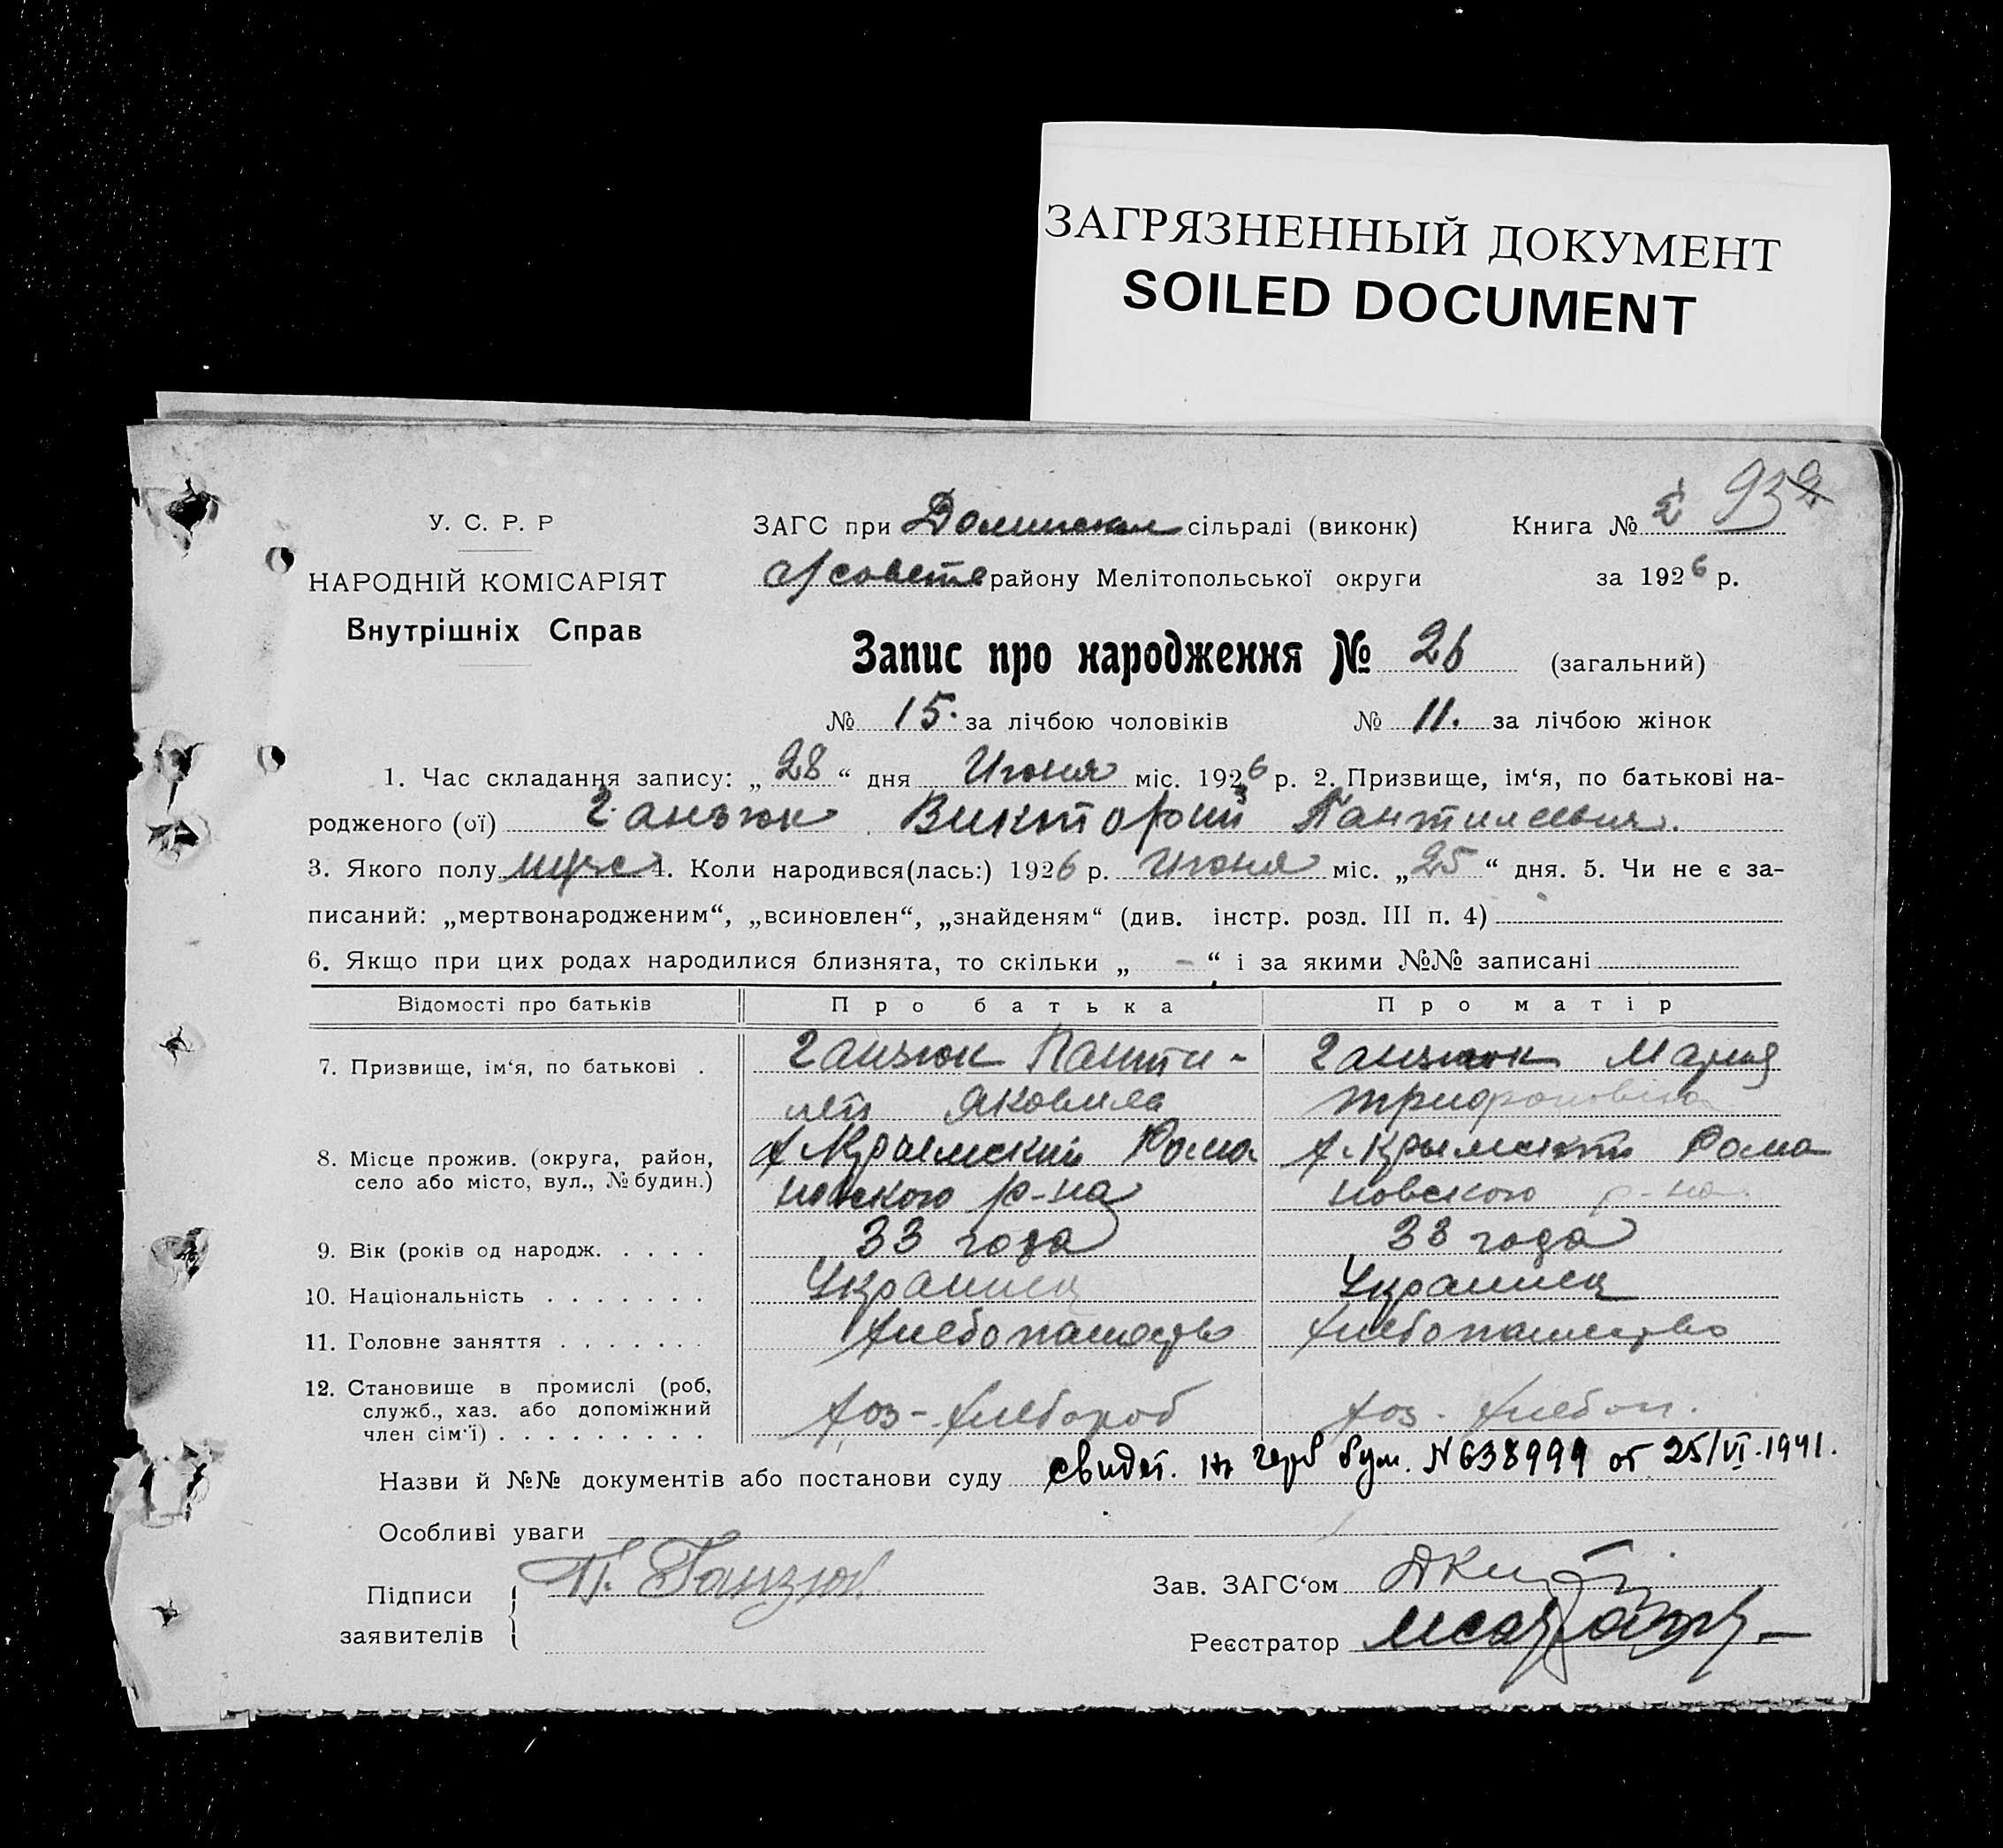 ЗАГРЯЗНЕННЫЙ ДОКУМЕНТ
SOILED DOCUMENT
У. С. Р. Р
НАРОДНІЙ КОМІСАРІЯТ
Внутрішніх Справ
ЗАГС при сільраді (виконк) Книга №
с/совете району Мелітопольської округи за 1926 р.
Запис про народження № 26 (загальний)
№ 15. за лічбою чоловіків № 11. за лічбою жінок
1. Час складання запису: „28“ дня Июня міс. 1926 р. 2. Призвище, ім‘я, по батькові на-
родженого (ої) Ганзюк Викторий
3. Якого полу муж 4. Коли народився(лась:) 1926 р. Июня міс. „25“ дня. 5. Чи не є за-
писаний: „мертвонародженим“, „всиновлен“, „знайденям“ (див. інстр. розд. III п. 4)
6. Якщо при цих родах народилися близнята, то скільки „ - “ і за якими №№ записані
Відомості про батьків Про батька Про матір
7. Призвище, ім‘я, по батькові . Ганзюк Панти- Ганзюк Мария
Трифоновна
8. Місце прожив. (округа, район, х Крымский Рома х. Крымский Рома
село або місто, вул., № будин.) новского р-на новского р-на
9. Вік (років од народж. . . . . 33 года 33 года
10. Національність . . . . . . . Украинец Украинец
11. Головне заняття . . . . . . . хлебопашество хлебопашество
12. Становище в промислі (роб, хоз-хлебороб хоз. хлебоп.
служб., хаз. або допоміжний
член сім‘ї) . . . . . . . . .
Назви й №№ документів або постанови суду свидет. на герб бум. N 638999 от 25/VI-1941.
Особливі уваги
Підписи П. Ганзюк Зав. ЗАГС‘ом
заявителів Реєстратор